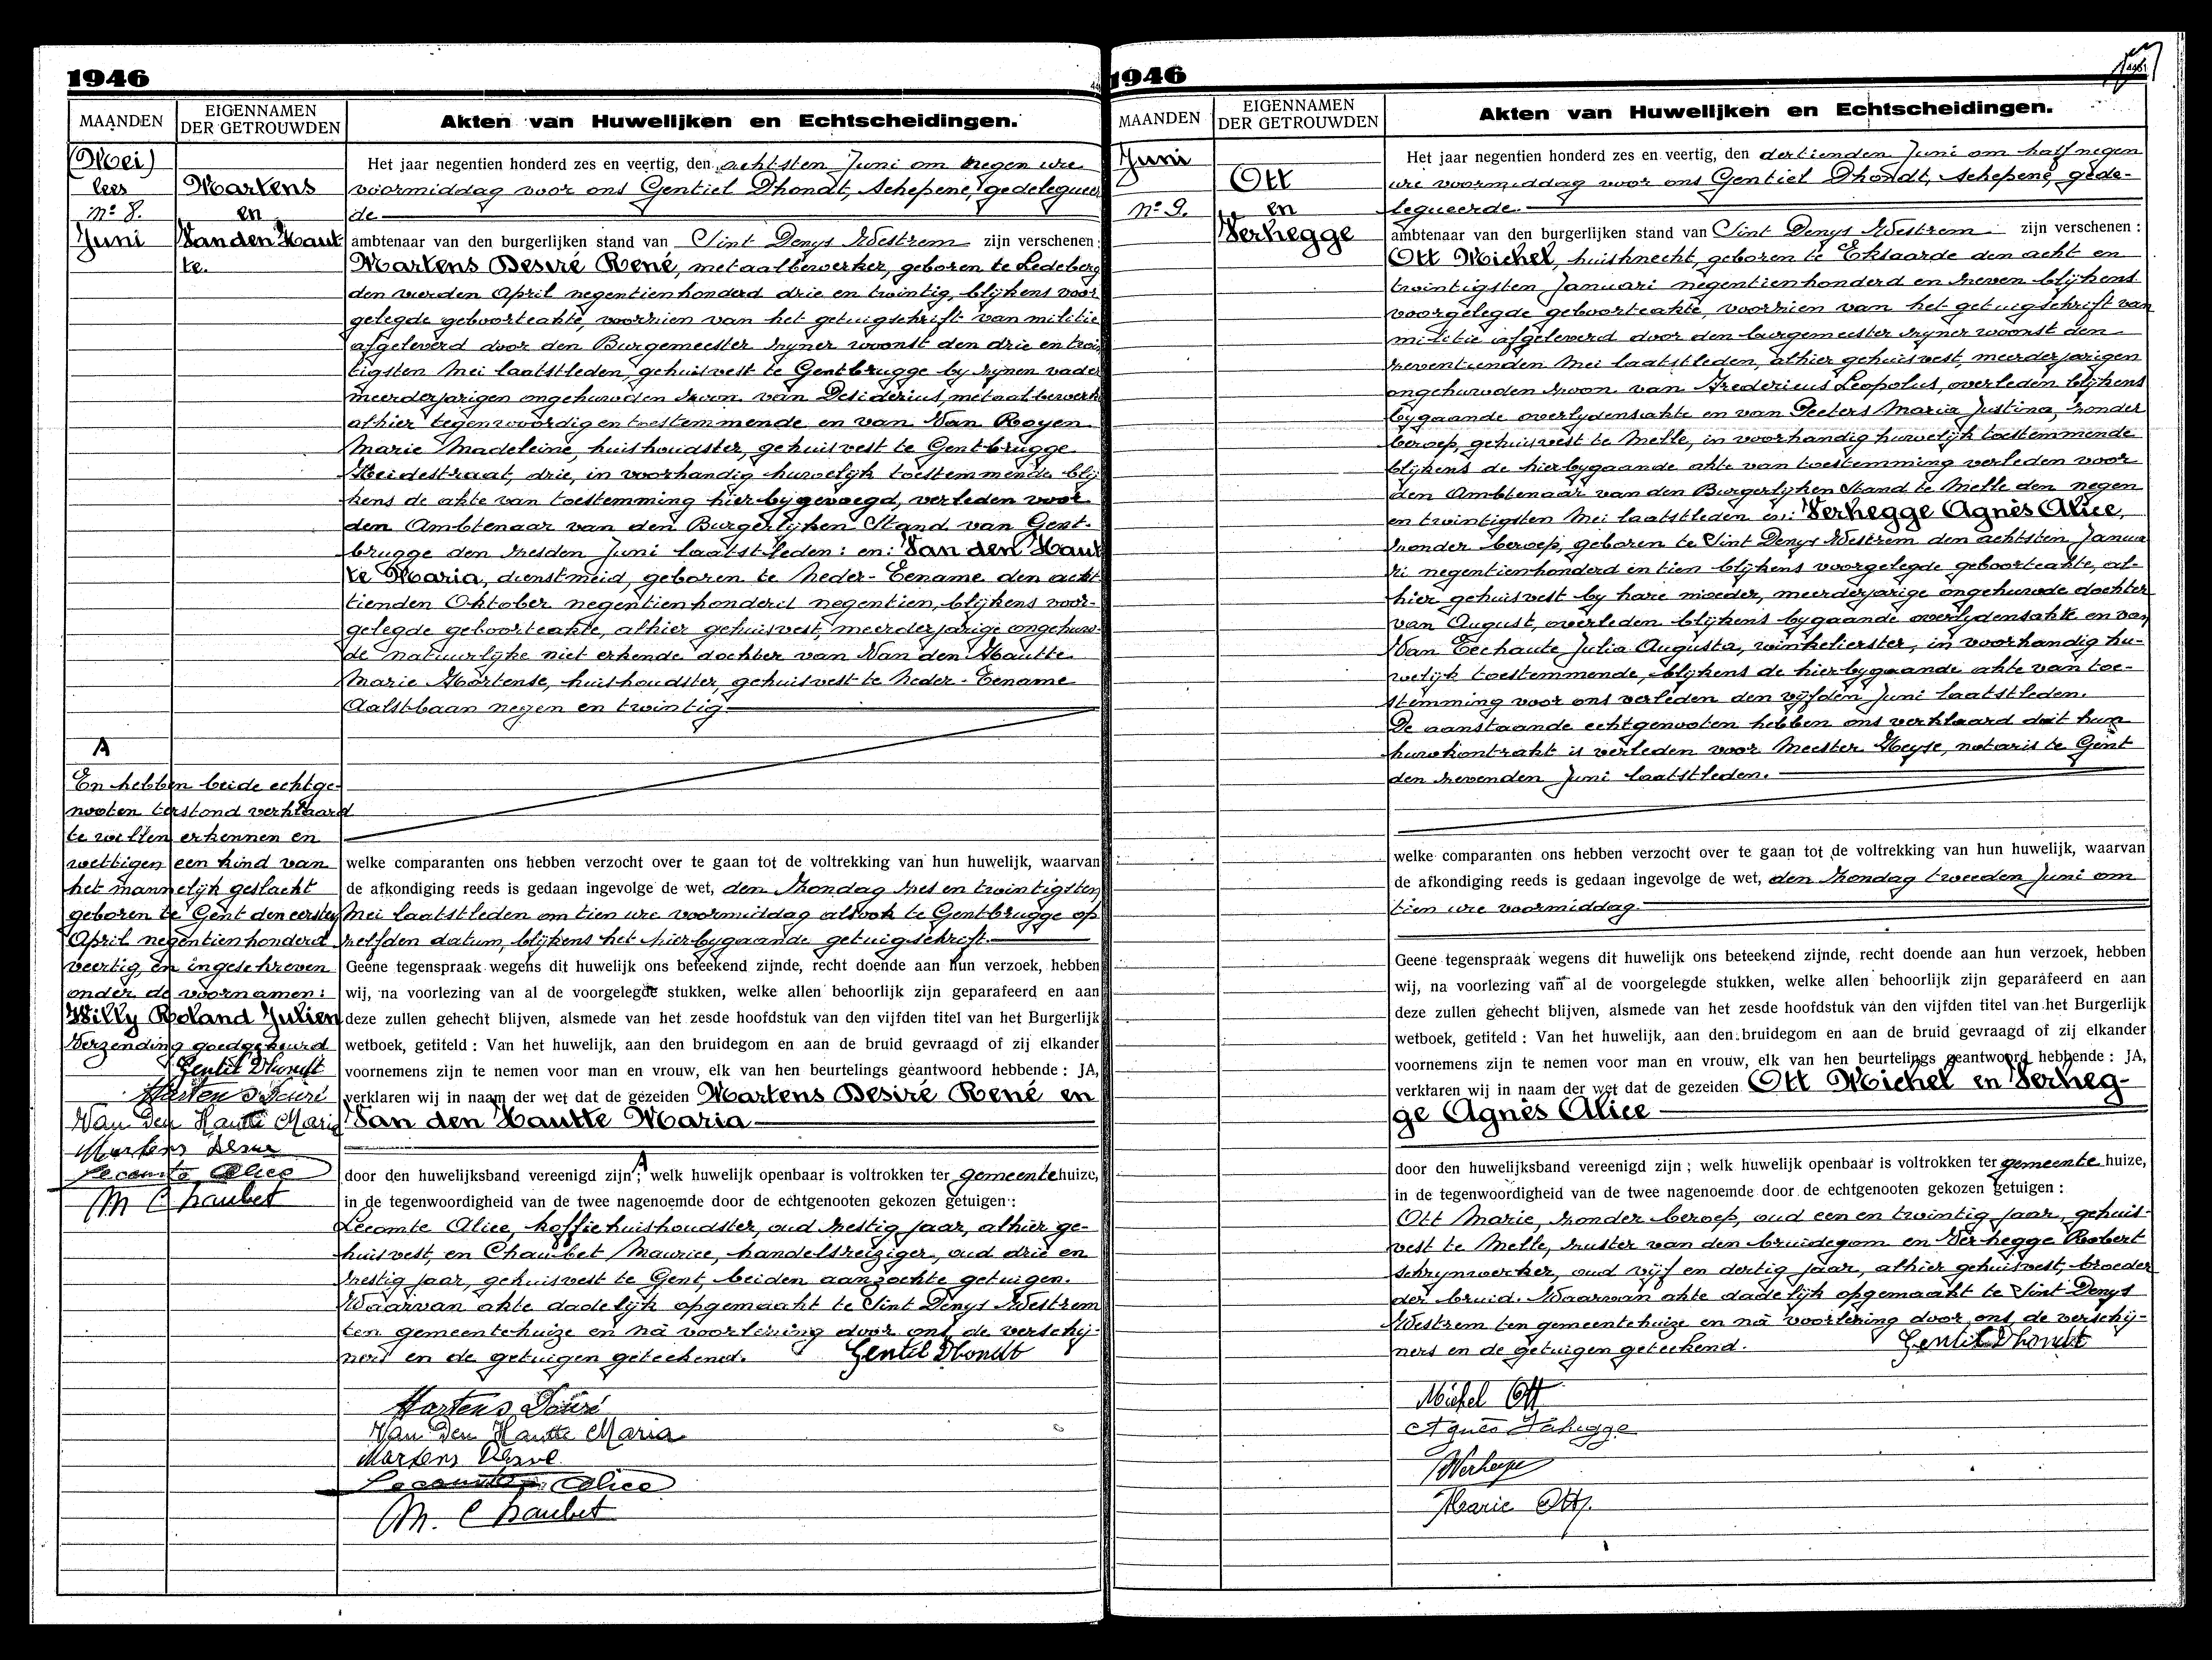 1946
MAANDEN
EIGENNAMEN
DER GETROUWDEN
Akten van Huwelijken en Echtscheidingen.
(Mei)
lees
No 8.
Juni
Martens
en
Van den Haut
te.
Het jaar negentien honderd zes en veertig, den achtsten Juni om negen ure
voormiddag voor ons Gentiel Dhondt, Schepene, gedelegueer
de
ambtenaar van den burgerlijken stand van Sint Denys Westrem zijn verschenen :
Martens Desiré René, metaalbewerker, geboren te Ledeberg
den vierden April negentienhonderd drie en twintig, blijkens voor
gelegde geboorteakte, voorzien van het getuigschrift van militie
afgeleverd door den Burgemeester zijner woonst den drie en twin
tigsten Mei laatstleden, gehuisvest te Gentbrugge by zijnen vader
meerderjarigen ongehuwden zoon van Desiderius, metaalbewerk
alhier tegenwoordig en toestemmende en van Van Royen
Marie Madeleine, huishoudster, gehuisvest te Gentbrugge
Heidestraat, drie, in voorhandig huwelijk toestemmende blij
kens de akte van toestemming hierbygevoegd, verleden voor
den Ambtenaar van den Burgerlijken Stand van Gent-
brugge den zesden Juni laatstleden : en : Van den Haut
te Maria, dienstmeid, geboren te Neder-Eename den acht
tienden Oktober negentienhonderd negentien, blijkens voor-
gelegde geboorteakte, alhier gehuisvest, meerderjarige ongehuw-
de natuurlijke niet erkende dochter van Van den Hautte
Marie Hortense, huishoudster, gehuisvest te Neder-Eename
Aalstbaan negen en twintig
A
En hebben beide echtge-
nooten terstond verklaard
te willen erkennen en
wettigen een kind van
het mannelijk geslacht
geboren te Gent den eersten
April negentienhonderd
veertig, en ingeschreven
onder de voornamen :
Willy Roland Julien
Verzending goedgekeurd
Gentil Dhondt
Martens Désiré
Van Den Hautte Maria
Martens Desire
Lecomte Alice
M Chaubet
welke comparanten ons hebben verzocht over te gaan tot de voltrekking van hun huwelijk, waarvan
de afkondiging reeds is gedaan ingevolge de wet, den Zondag zes en twintigsten
Mei laatstleden om tien ure voormiddag alsook te Gentbrugge op
zelfden datum, blijkens het hierbygaande getuigschrift.
Geene tegenspraak wegens dit huwelijk ons beteekend zijnde, recht doende aan hun verzoek, hebben
wij, na voorlezing van al de voorgelegde stukken, welke allen behoorlijk zijn geparafeerd en aan
deze zullen gehecht blijven, alsmede van het zesde hoofdstuk van den vijfden titel van het Burgerlijk
wetboek, getiteld : Van het huwelijk, aan den bruidegom en aan de bruid gevraagd of zij elkander
voornemens zijn te nemen voor man en vrouw, elk van hen beurtelings geantwoord hebbende : JA,
verklaren wij in naam der wet dat de gezeiden Martens Desiré René en
Van den Hautte Maria
door den huwelijksband vereenigd zijn ; A welk huwelijk openbaar is voltrokken ter gemeentehuize,
in de tegenwoordigheid van de twee nagenoemde door de echtgenooten gekozen getuigen :
Lecomte Alice, koffiehuishoudster, oud zestig jaar, alhier ge-
huisvest, en Chaubet Maurice, handelsreiziger, oud drie en
zestig jaar, gehuisvest te Gent, beiden aanzochte getuigen.
Waarvan akte dadelijk opgemaakt te Sint Denys Westrem
ten gemeentehuize en na voorlezing door ons, de verschij-
ners en de getuigen geteekend. Gentil Dhondt
Martens Désiré
Van Den Hautte Maria
Martens Desire
Lecomte Alice
M. Chaubet
1946
MAANDEN
EIGENNAMEN
DER GETROUWDEN
Akten van Huwelijken en Echtscheidingen.
Juni
No 9.
Ott
en
Verhegge
Het jaar negentien honderd zes en veertig, den dertienden Juni om half negen
ure voormiddag voor ons Gentiel Dhondt, Schepene, gede-
legueerde.
ambtenaar van den burgerlijken stand van Sint Denys Westrem zijn verschenen :
Ott Michel, huisknecht, geboren te Eksaarde den acht en
twintigsten Januari negentienhonderd en zeven blijkens
voorgelegde geboorteakte, voorzien van het getuigschrift van
militie afgeleverd door den burgemeester zijner woonst den
zeventienden Mei laatstleden, alhier gehuisvest, meerderjarigen
ongehuwden zoon van Fredericus Leopolus, overleden blijkens
bygaande overlydensakte en van Peeters Maria Justina, zonder
beroep, gehuisvest te Melle, in voorhandig huwelijk toestemmende
blijkens de hierbygaande akte van toestemming verleden voor
den Ambtenaar van den Burgerlijken Stand te Melle den negen
en twintigsten Mei laatstleden en : Verhegge Agnès Alice,
zonder beroep, geboren te Sint Denys Westrem den achtsten Janua
ri negentienhonderd en tien blijkens voorgelegde geboorteakte, al-
hier gehuisvest by hare moeder, meerderjarige ongehuwde dochter
van August, overleden blijkens bygaande overlydensakte en van
Van Eechaute Julia Augusta, winkelierster, in voorhandig hu-
welijk toestemmende, blijkens de hierbygaande akte van toe-
stemming voor ons verleden den vijfden Juni laatstleden.
De aanstaande echtgenooten hebben ons verklaard dat hun
huwkontrakt is verleden voor Meester Heyse, notaris te Gent
den zevenden Juni laatstleden.
welke comparanten ons hebben verzocht over te gaan tot de voltrekking van hun huwelijk, waarvan
de afkondiging reeds is gedaan ingevolge de wet, den Zondag tweeden Juni om
tien ure voormiddag
Geene tegenspraak wegens dit huwelijk ons beteekend zijnde, recht doende aan hun verzoek, hebben
wij, na voorlezing van al de voorgelegde stukken, welke allen behoorlijk zijn geparafeerd en aan
deze zullen gehecht blijven, alsmede van het zesde hoofdstuk van den vijfden titel van het Burgerlijk
wetboek, getiteld : Van het huwelijk, aan den bruidegom en aan de bruid gevraagd of zij elkander
voornemens zijn te nemen voor man en vrouw, elk van hen beurtelings geantwoord hebbende : JA,
verklaren wij in naam der wet dat de gezeiden Ott Michel en Verheg-
ge Agnès Alice
door den huwelijksband vereenigd zijn ; welk huwelijk openbaar is voltrokken ter gemeente huize,
in de tegenwoordigheid van de twee nagenoemde door de echtgenooten gekozen getuigen :
Ott Marie, zonder beroep, oud een en twintig jaar, gehuis-
vest te Melle, zuster van den bruidegom en Verhegge Robert
schrynwerker, oud vijf en dertig jaar, alhier gehuisvest, broeder
der bruid. Waarvan akte dadelijk opgemaakt te Sint Denys
Westrem ten gemeentehuize en na voorlezing door ons, de verschij-
ners en de getuigen geteekend. Gentil Dhondt
Michel Ott
Agnes Verhegge
Verhegge
Marie Ott.